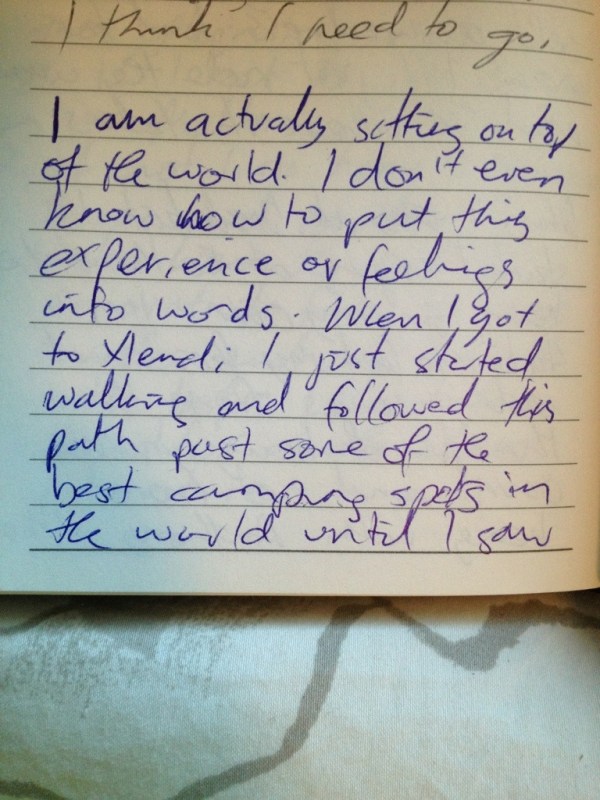 I think I need to go.
I am actually sitting on top
of the world. I don't even
know how to put this
experience or feelings
into words. When I got
to Xlendi I just started
walking and followed this
path past some of the
best camping spots in
the world until I saw